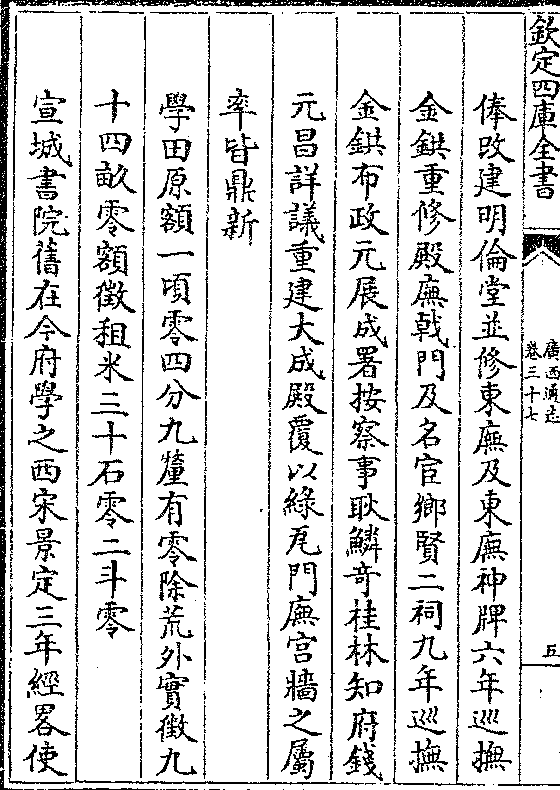 欽定四庫全書
廣西通志
卷三十七
五
俸改建明倫堂並修東廡及東廡神牌六年巡撫
金鉷重修殿廡㦸門及名宦鄉賢二祠九年巡撫
金鉷布政元展成署按察事耿鱗奇桂林知府錢
元昌詳議重建大成殿覆以綠瓦門廡宮牆之屬
率皆鼎新
學田原額一頃零四分九釐有零除荒外實徵九
十四畝零額徵租米三十石零二斗零
宣城書院舊在今府學之西宋景定三年經畧使